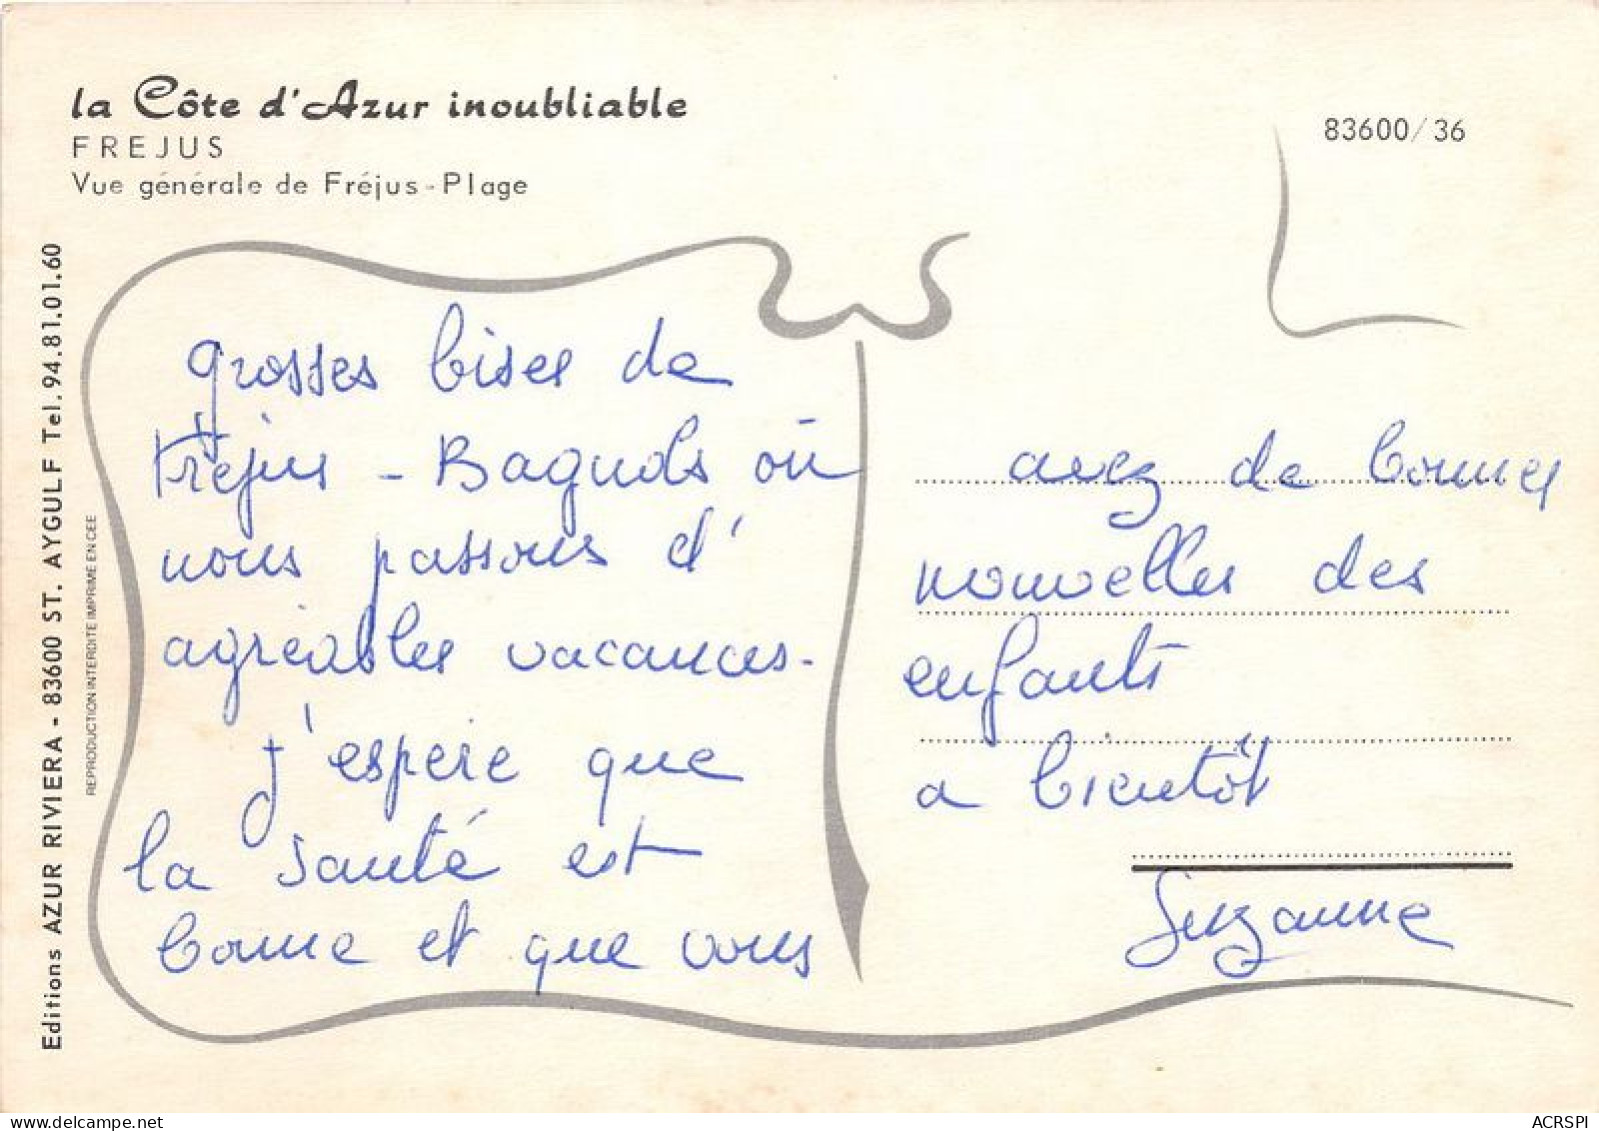 la Côte d'Azur inoubliable
FREJUS
Vue générale de Fréjus-Plage
83600/36
Editions AZUR RIVIERA - 83600 ST. AYGULF Tel. 94.81.01.60
REPRODUCTION INTERDITE IMPRIME EN CEE
grosses bises de
Fréjus - Bagnols où
nous passons d'
agréables vacances.
j'espère que
la santé est
bonne et que vous
avez de bonnes
nouvelles des
enfants
a bientôt
Suzanne
delcampe.net
ACRSPI